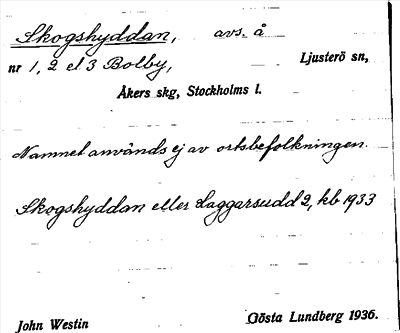 Skogshyddan, avs. å
nr 1, 2 el 3 Bolby, Ljusterö sn,
Åkers skg, Stockholms l.
Namnet används ej av ortsbefolkningen.
Skogshyddan eller Laggarsudd 2, kb 1933
John Westin Gösta Lundberg 1936.